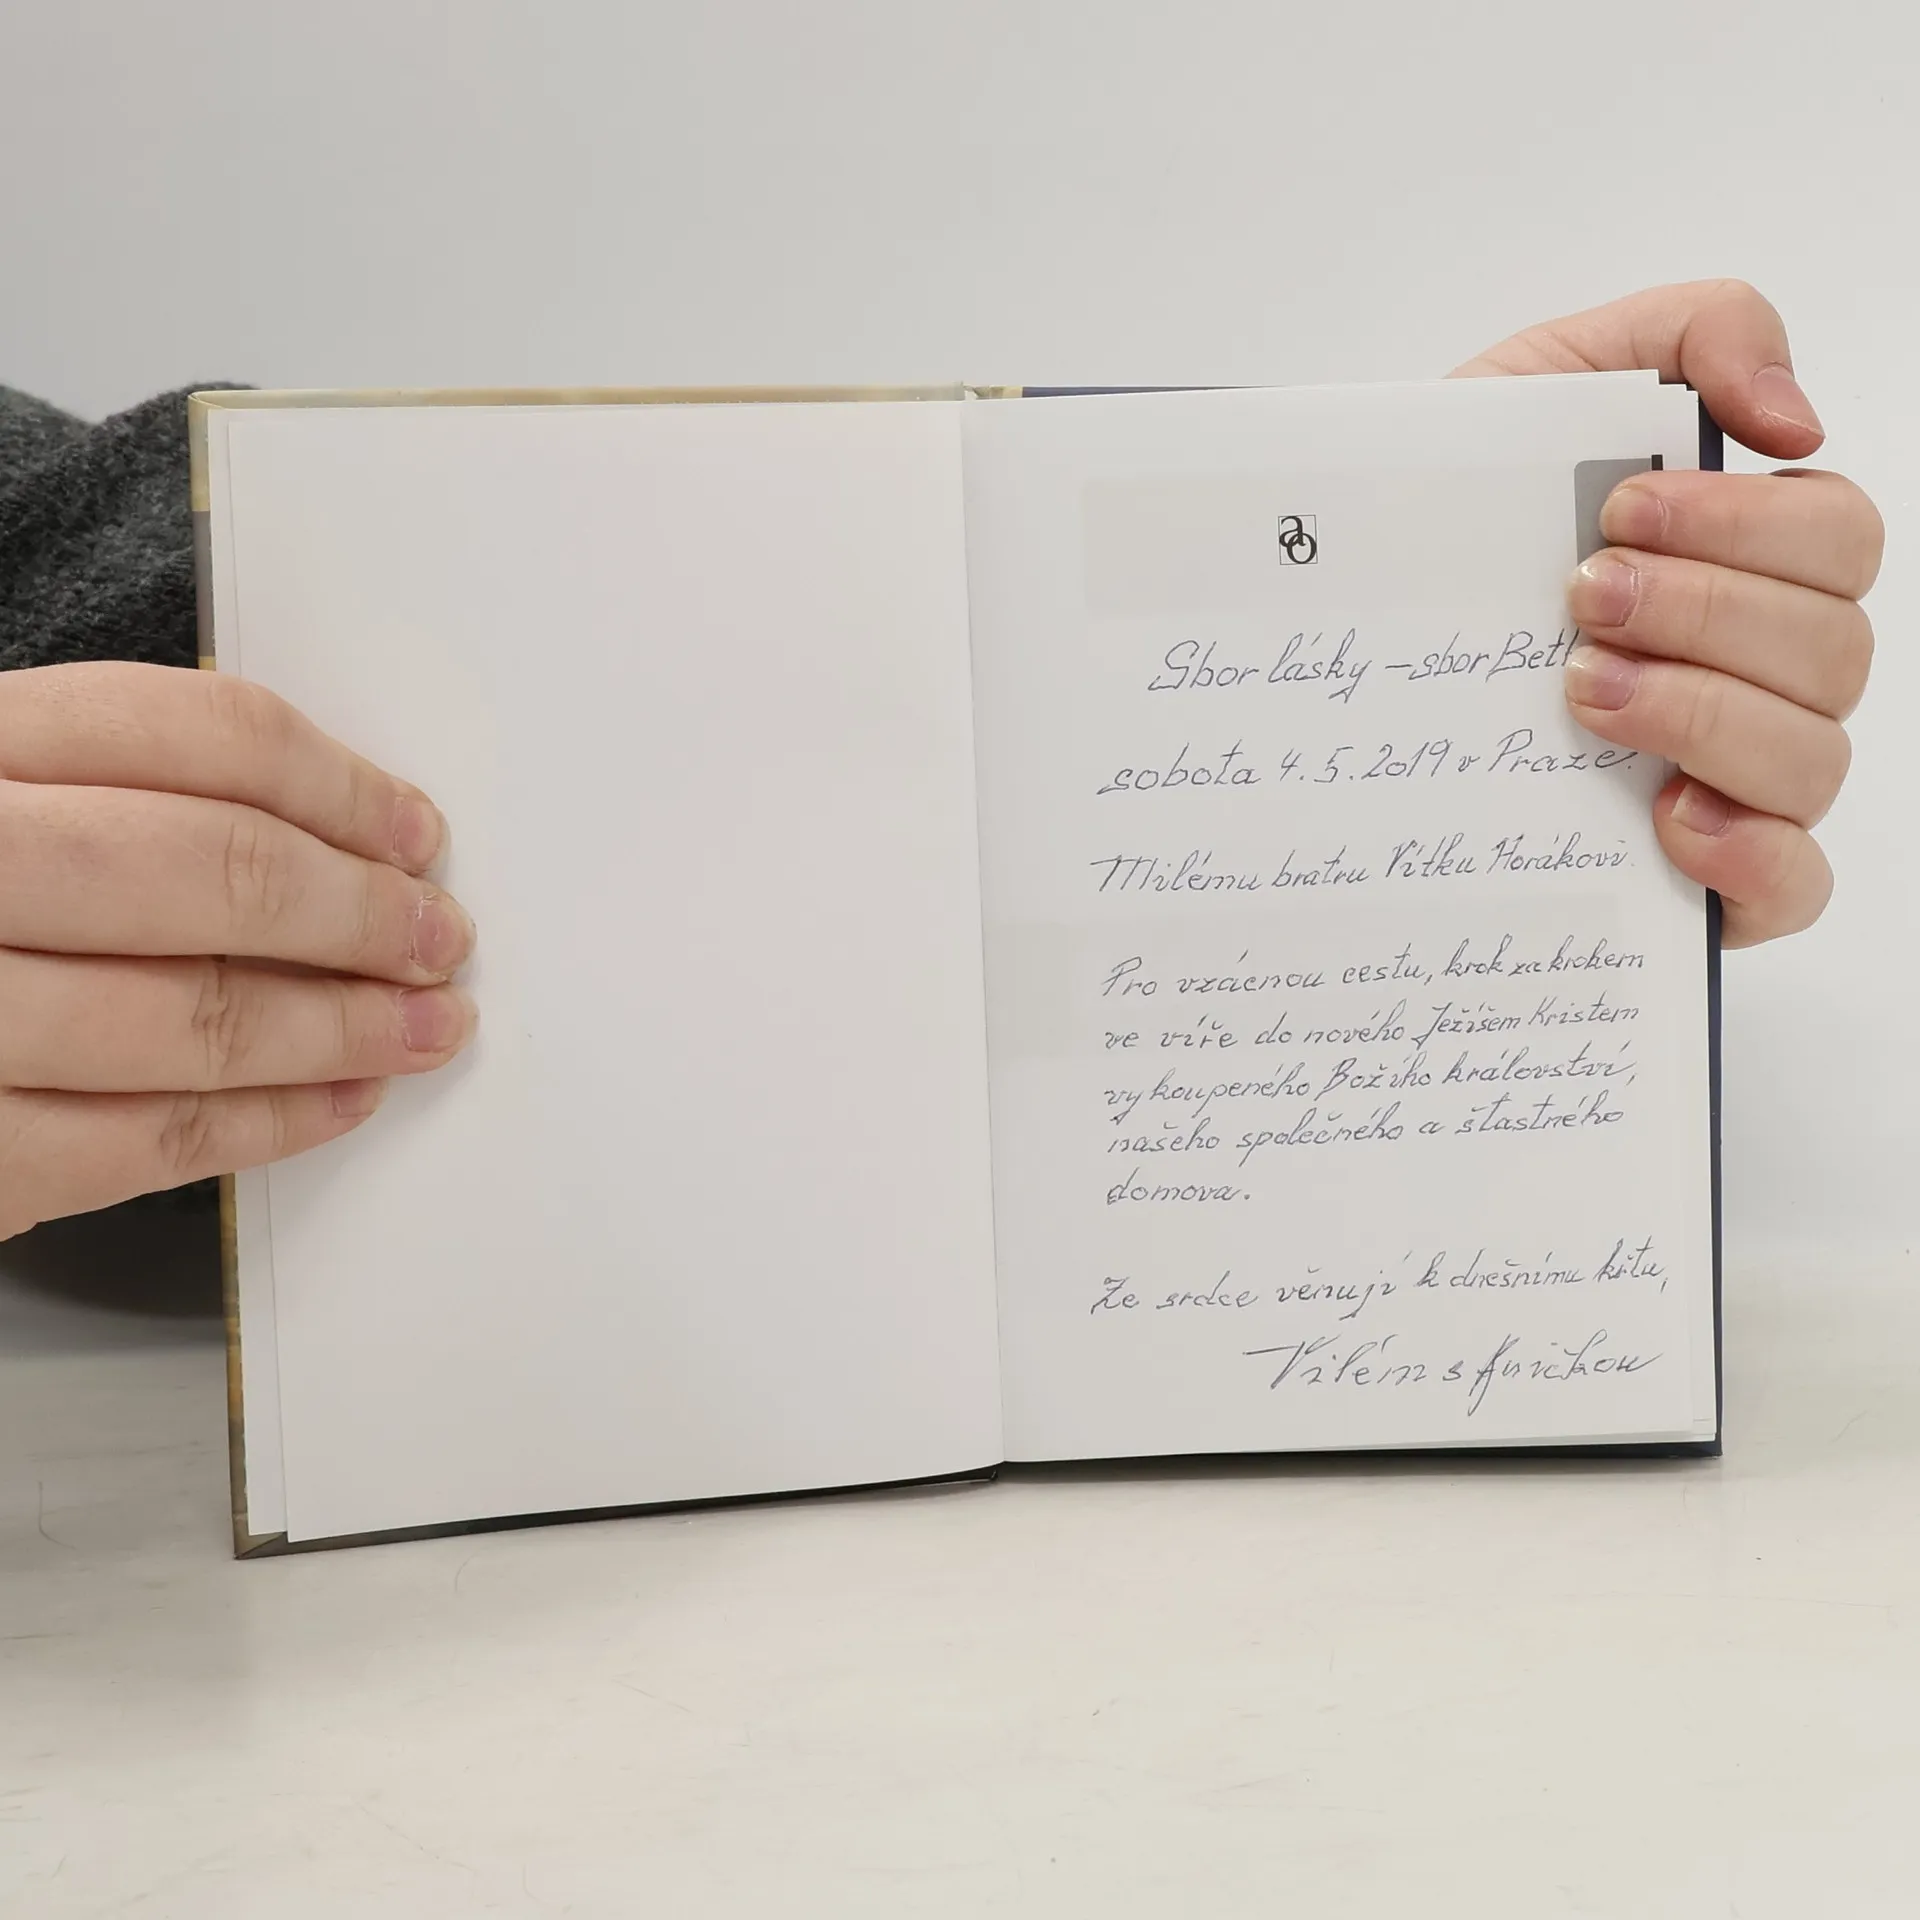 ao
Sbor lásky – sbor Betl
sobota 4.5.2019 v Praze.
Milému bratru Vítku Horákovi.
Pro vzácnou cestu, krok za krokem
ve víře do nového Ježíšem Kristem
vykoupeného Božího království,
našeho společného a šťastného
domova.
Ze srdce věnují k dnešnímu křtu,
Vilém s Aničkou